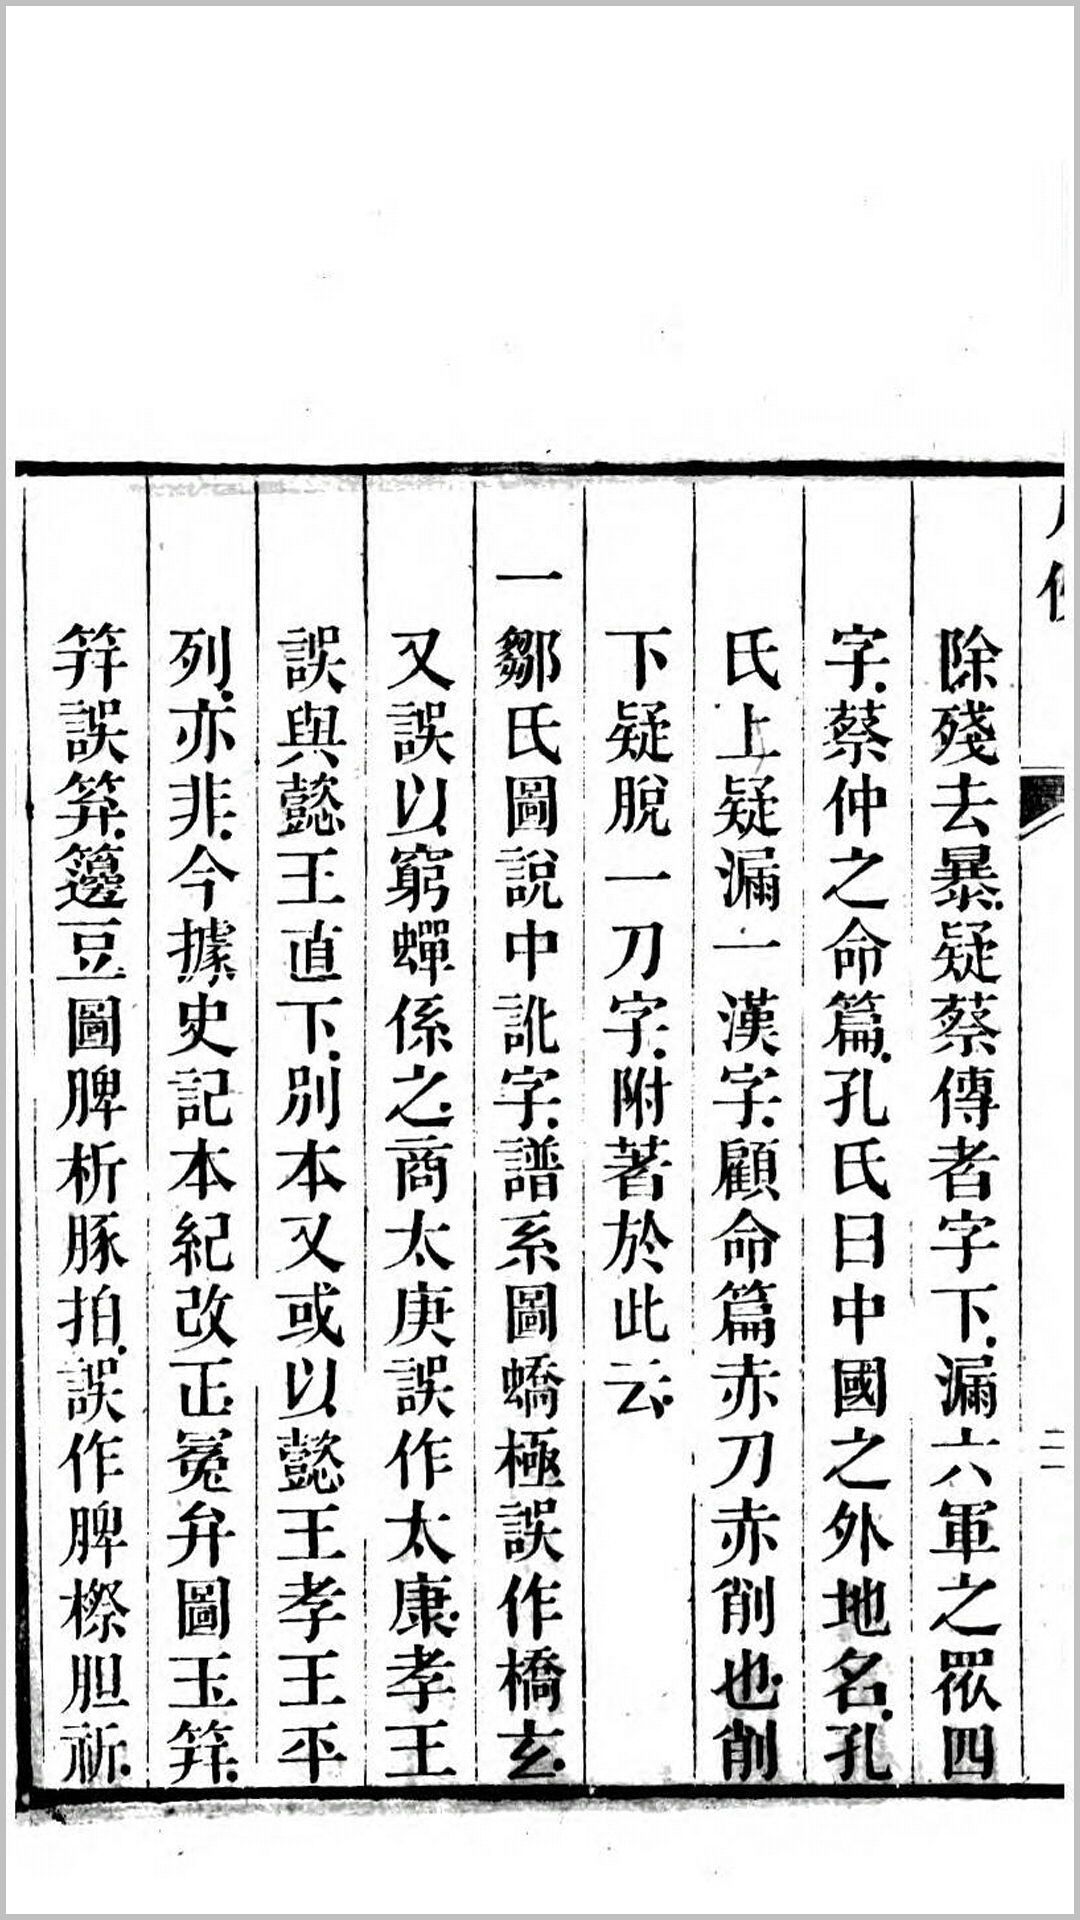 除殘去暴疑蔡傳者字下漏六軍之眾四
字蔡仲之命篇孔氏曰中國之外地名孔
氏上疑漏一漢字顧命篇赤刀赤削也削
下疑脫一刀字附著於此云
一鄒氏圖說中訛字譜系圖蟜極誤作橋玄
又誤以窮蟬係之商太庚誤作太康孝王
誤與懿王直下別本又或以懿王孝王平
列亦非今據史記本紀改正冕弁圖玉笄
笄誤筭籩豆圖脾析豚拍誤作脾㮮胆祈
二